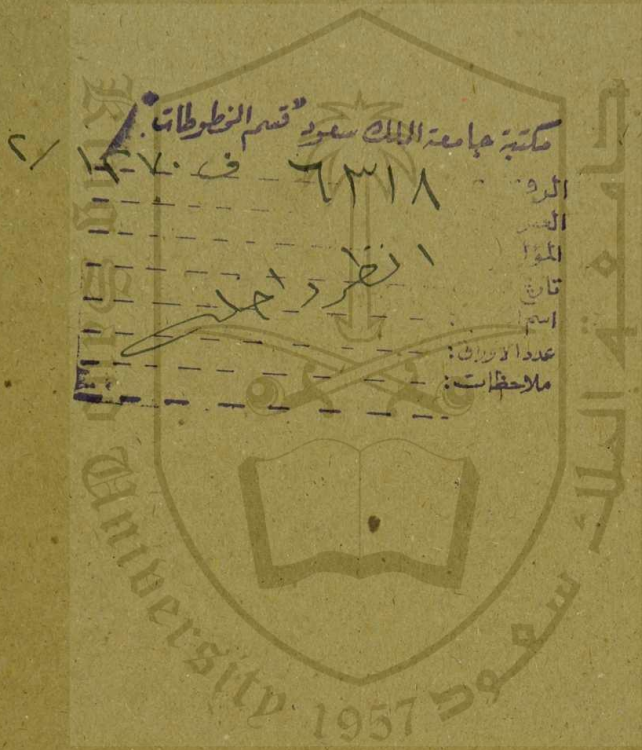 مكتبة جامعة الملك سعود "قسم المخطوطات"
الرق ٦٣١٨ ف ٢/
العنـ
المؤل
تاري
اسم
انظر داخله
عدد الأوراق:
ملاحظات:
King Saud University 1957
جامعة الملك سعود